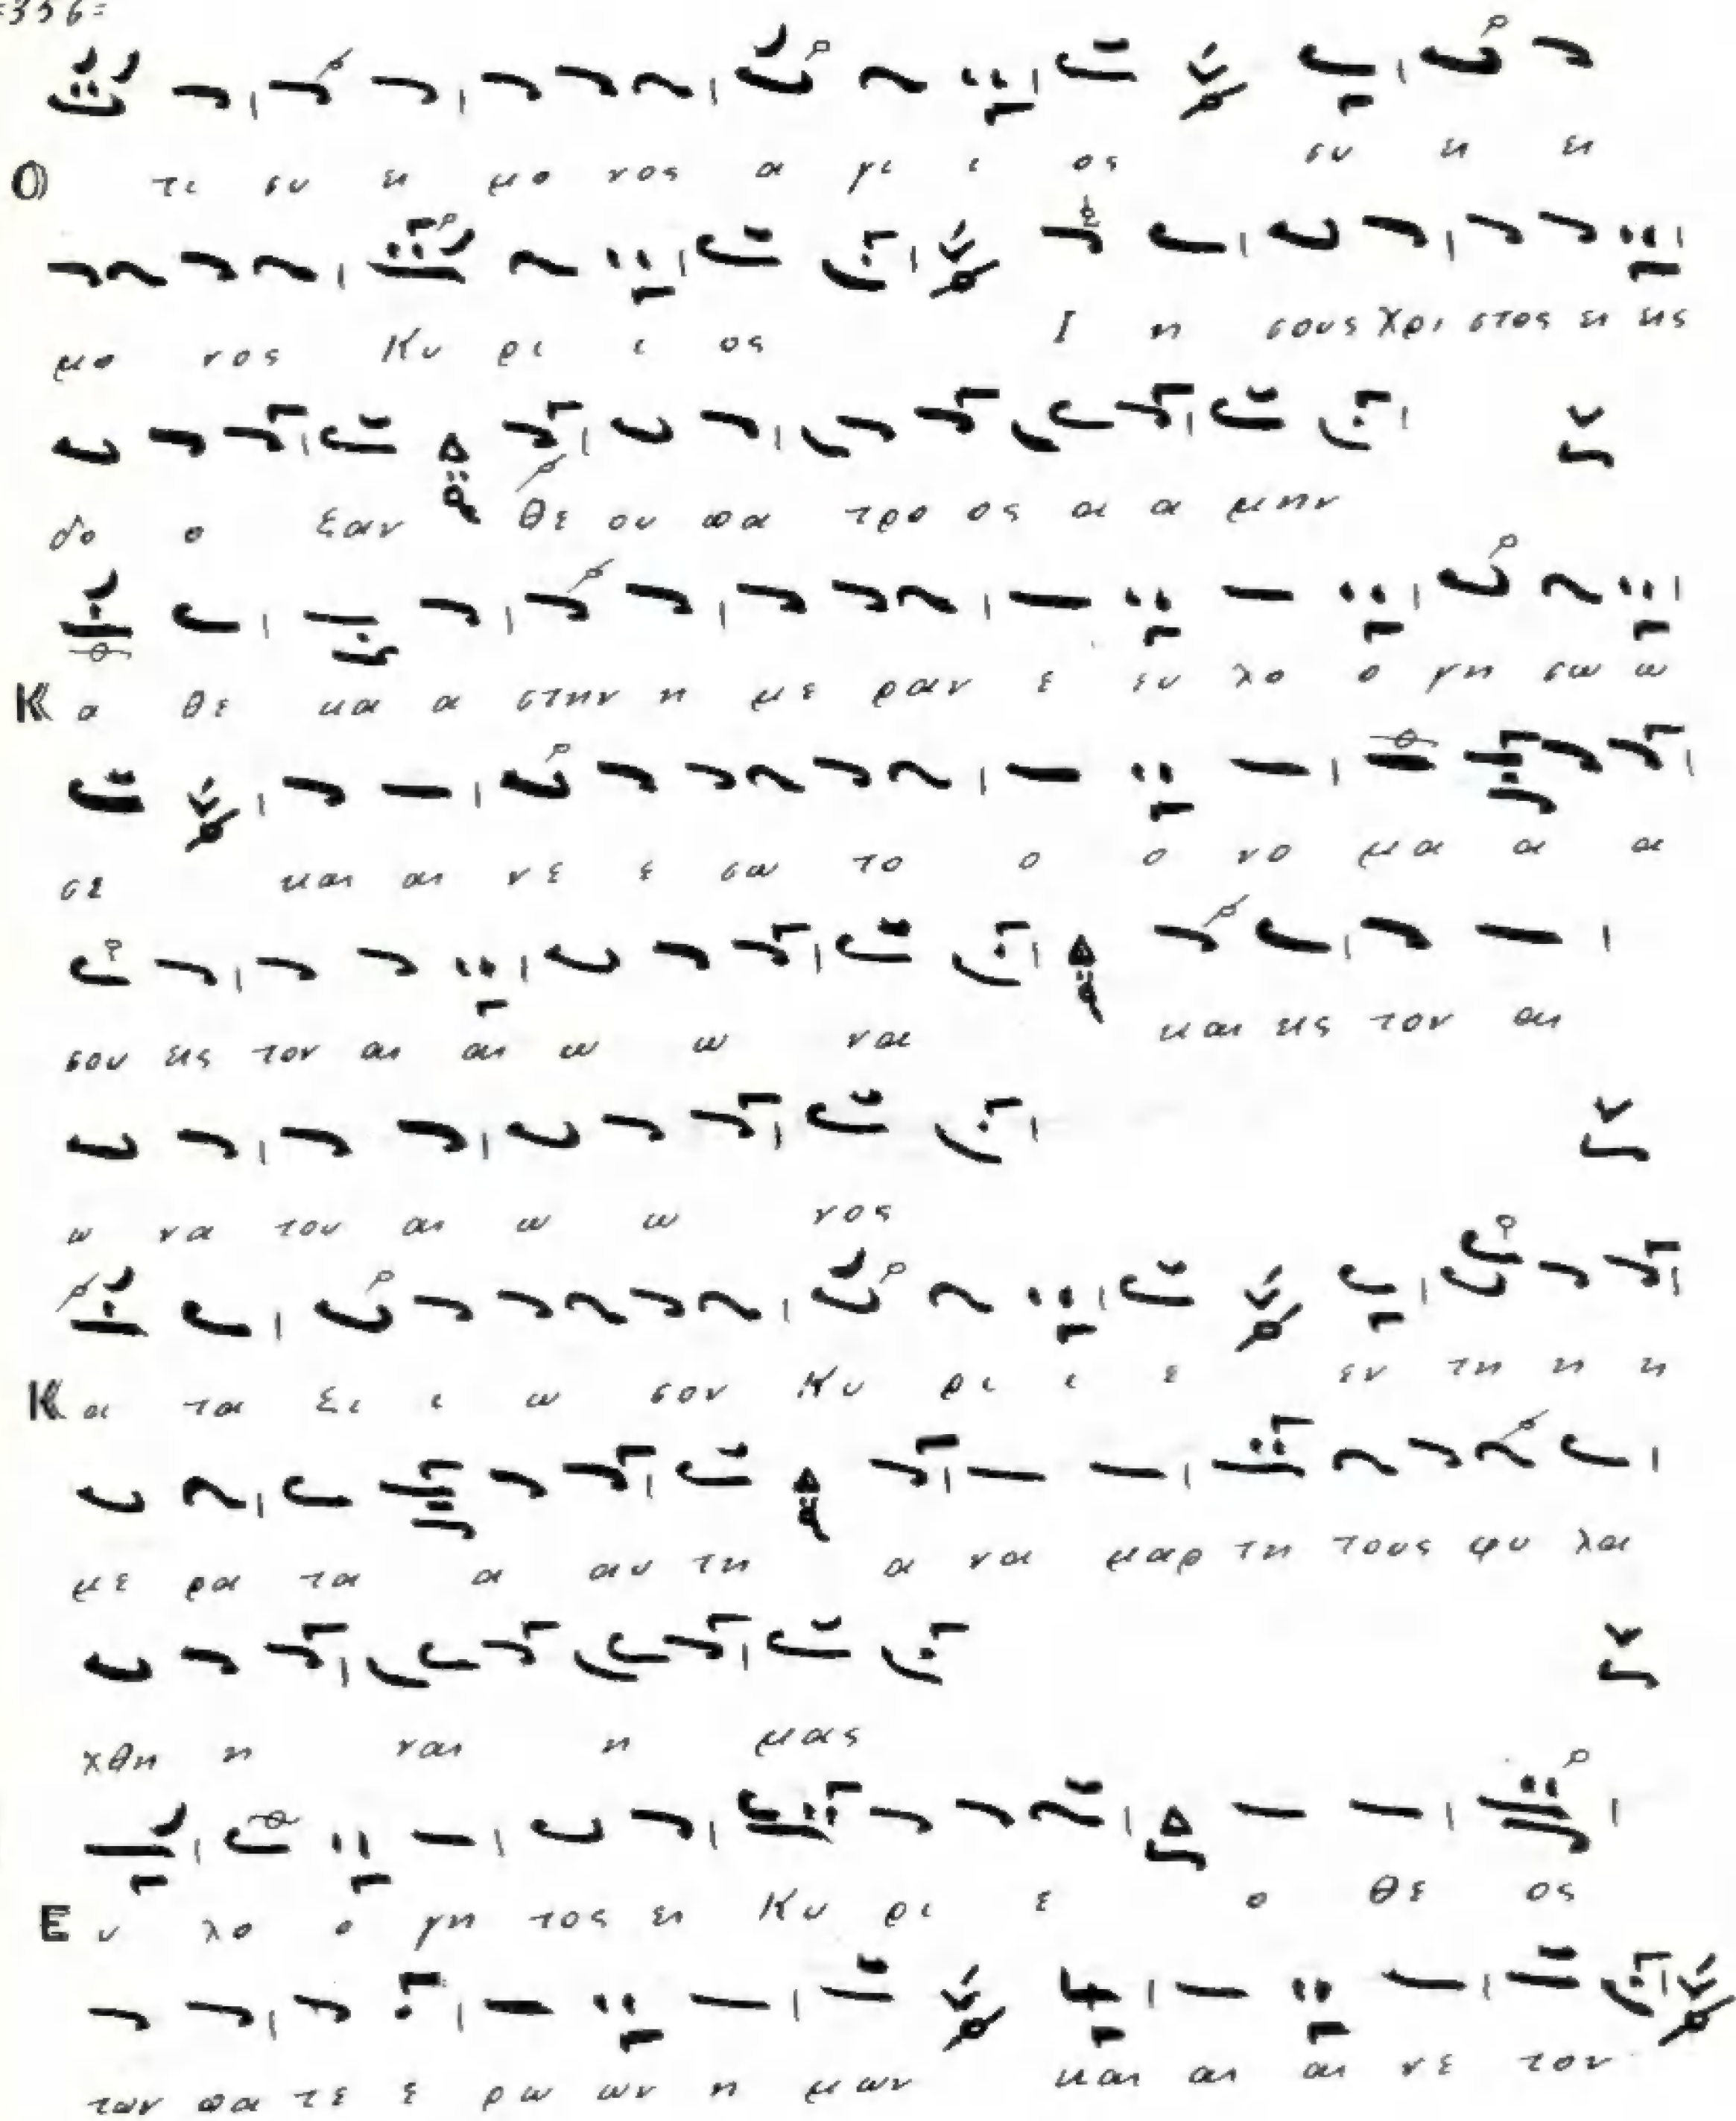 =356=
Ο τι συ ει μο νος α γι ι ος συ ει ει
μο νος Κυ ρι ι ος Ι η σους Χρι στος ει εις
δο ο ξαν Θε ου πα τρο ος α α μην
Κ α θε κα α στην η με ραν ε ευ λο ο γη σω ω
σε και αι νε ε σω το ο ο νο μα α α
σου εις τον αι αι ω ω να και εις τον αι
ω να του αι ω ω νος
Κ α τα ξι ι ω σον Κυ ρι ι ε εν τη η η
με ρα τα α αυ τη α να μαρ τη τους φυ λα
χθη η ναι η μας
Ε υ λο ο γη τος ει Κυ ρι ε ο Θε ος
των πα τε ε ρω ων η μων και αι αι νε τον